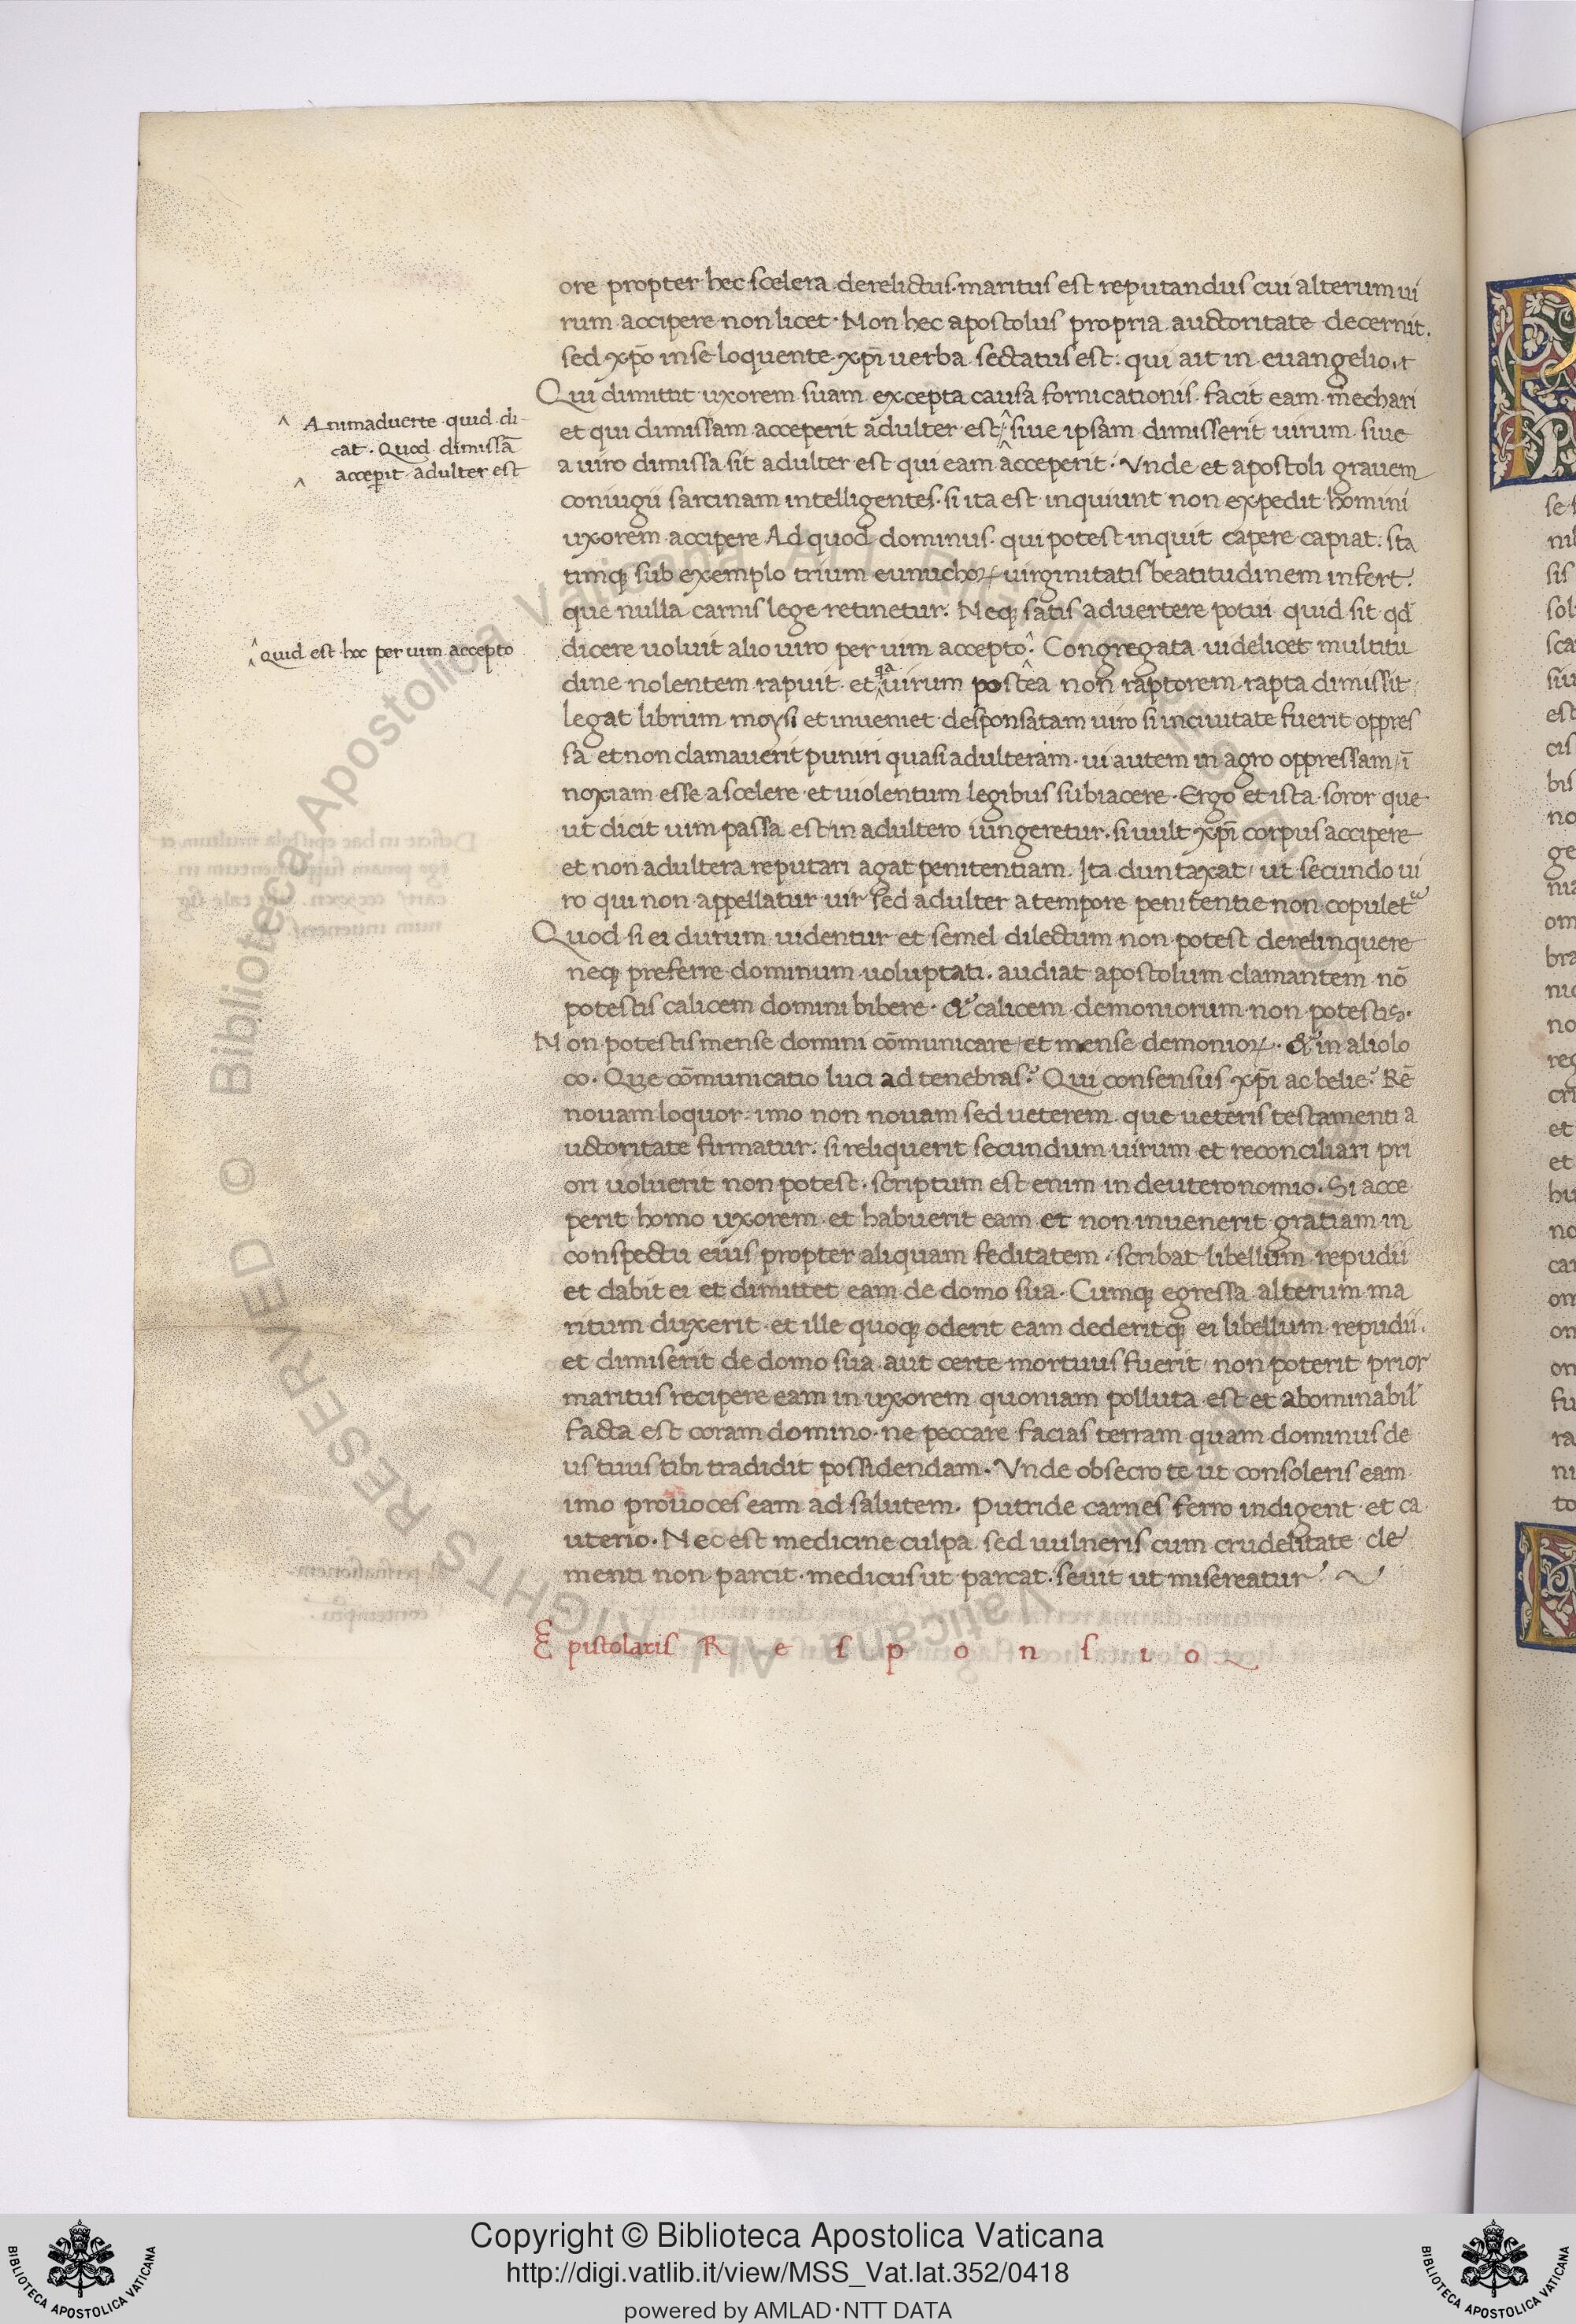 ore propter hec scelera derelictus maritus est reputandus cui alterum ui
rum accipere non licet. Non hec apostolus propria auctoritate decernit.
sed xp̄o in se loquente xp̄i uerba sectatus est: qui ait in euangelio.
Qui dimittit uxorem suam excepta causa fornicationis. facit eam mechari
et qui dimissam acceperit adulter est. siue ipsam dimisserit uirum siue
a uiro dimissa sit adulter est qui eam acceperit. Vnde et apostoli grauem
coniugii sarcinam intelligentes. si ita est inquiunt non expedit homini
uxorem accipere Ad quod dominus. qui potest inquit capere capiat. sta
timqꝫ sub exemplo trium eunuchoꝝ uirginitatis beatitudinem infert.
que nulla carnis lege retinetur. Neqꝫ satis aduertere potui quid sit qđ
dicere uoluit alio uiro per uim accepto. Congregata uidelicet multitu
dine nolentem rapuit. et uirum postea non raptorem rapta dimissit
legat librum moysi et inueniet desponsatam uiro si in ciuitate fuerit oppres
sa et non clamauerit puniri quasi adulteram. ui autem in agro oppressam ī
noxiam esse a scelere et uiolentum legibus subiacere. Ergo et ista soror que
ut dicit uim passa est in adultero iungeretur. si uult xp̄i corpus accipere
et non adultera reputari agat penitentiam. Ita duntaxat ut secundo ui
ro qui non appellatur uir sed adulter a tempore penitentie non copulet
Quod si ei durum uidentur et semel dilectum non potest derelinquere
neqꝫ preferre dominum uoluptati. audiat apostolum clamantem nō
potestis calicem domini bibere. & calicem demoniorum non potestis.
Non potestis mense domini cōmunicare et mense demonioꝝ. & in alio lo
co. Que cōmunicatio luci ad tenebras? Qui consensus xp̄i ac belie? Rē
nouam loquor imo non nouam sed ueterem que ueteris testamenti a
uctoritate firmatur. si reliquerit secundum uirum et reconciliari pri
ori uoluerit non potest. scriptum est enim in deuteronomio. Si acce
perit homo uxorem et habuerit eam et non inuenerit gratiam in
conspectu eius propter aliquam feditatem. scribat libellum repudii
et dabit ei et dimittet eam de domo sua. Cumqꝫ egressa alterum ma
ritum duxerit et ille quoqꝫ oderit eam dederitqꝫ ei libellum repudii.
et dimiserit de domo sua aut certe mortuus fuerit non poterit prior
maritus recipere eam in uxorem quoniam polluta est et abominabil
facta est coram domino. ne peccare facias terram quam dominus de
us tuus tibi tradidit possidendam. Vnde obsecro te ut consoleris eam
imo prouoces eam ad salutem. Putride carnes ferro indigent et ca
uterio. Nec est medicine culpa sed uulneris cum crudelitate cle
menti non parcit medicus ut parcat. seuit ut misereatur.
Epistolaris Responsio
Animaduerte quid di
cat. Quod dimissā
accepit adulter est
quid est hoc per uim accepto
Copyright © Biblioteca Apostolica Vaticana
http://digi.vatlib.it/view/MSS_Vat.lat.352/0418
powered by AMLAD·NTT DATA
BIBLIOTECA APOSTOLICA VATICANA
BIBLIOTECA APOSTOLICA VATICANA